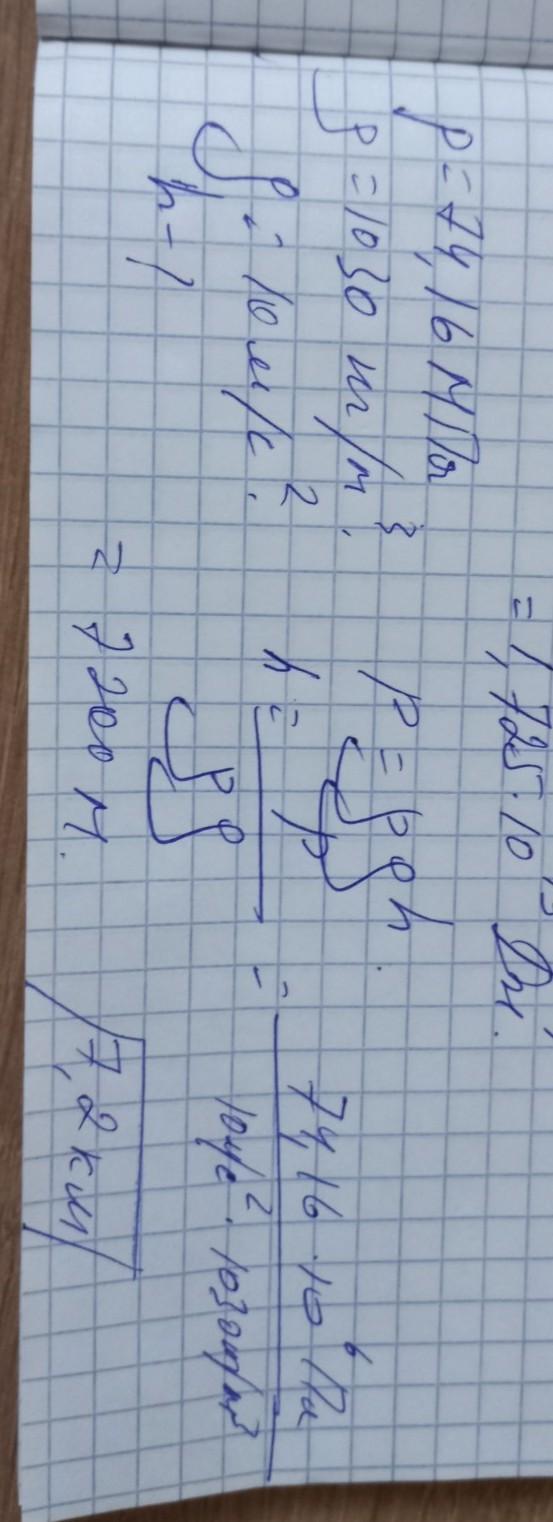 = 1,725·10 Дж.
p = 74,16 МПа
ρ = 1030 кг/м³.
g = 10 м/с².
h - ?
p = ρgh.
h = p / ρg = 74,16·10⁶ Па / 10 м/с²·1030 кг/м³
= 7200 м.
7,2 км